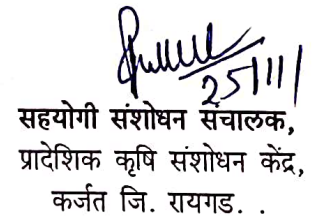 25/11/
सहयोगी संशोधन संचालक,
प्रादेशिक कृषि संशोधन केंद्र,
कर्जत जि. रायगड. .